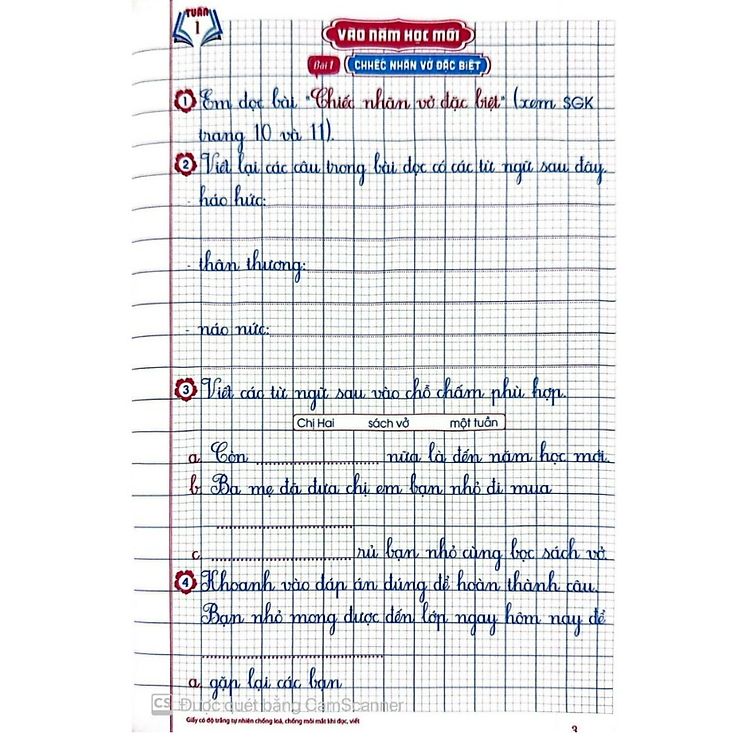 TUẦN
1
VÀO NĂM HỌC MỚI
Bài 1 CHHẾC NHÃN VỞ ĐẶC BIỆT
1 Em đọc bài "Chiếc nhãn vở đặc biệt" (xem SGK
trang 10 và 11).
2 Viết lại các câu trong bài đọc có các từ ngữ sau đây.
- háo hức:
- thân thương:
- náo nức:
3 Viết các từ ngữ sau vào chỗ chấm phù hợp.
Chị Hai sách vở một tuần
a. Còn ........................ nữa là đến năm học mới.
b. Ba mẹ đã đưa chị em bạn nhỏ đi mua
...........................
c. ........................... rủ bạn nhỏ cùng bọc sách vở.
4 Khoanh vào đáp án đúng để hoàn thành câu.
Bạn nhỏ mong được đến lớp ngay hôm nay để
...................................
a. gặp lại các bạn
CS Được quét bằng CamScanner
Giấy có độ trắng tự nhiên chống loá, chống mỏi mắt khi đọc, viết
3